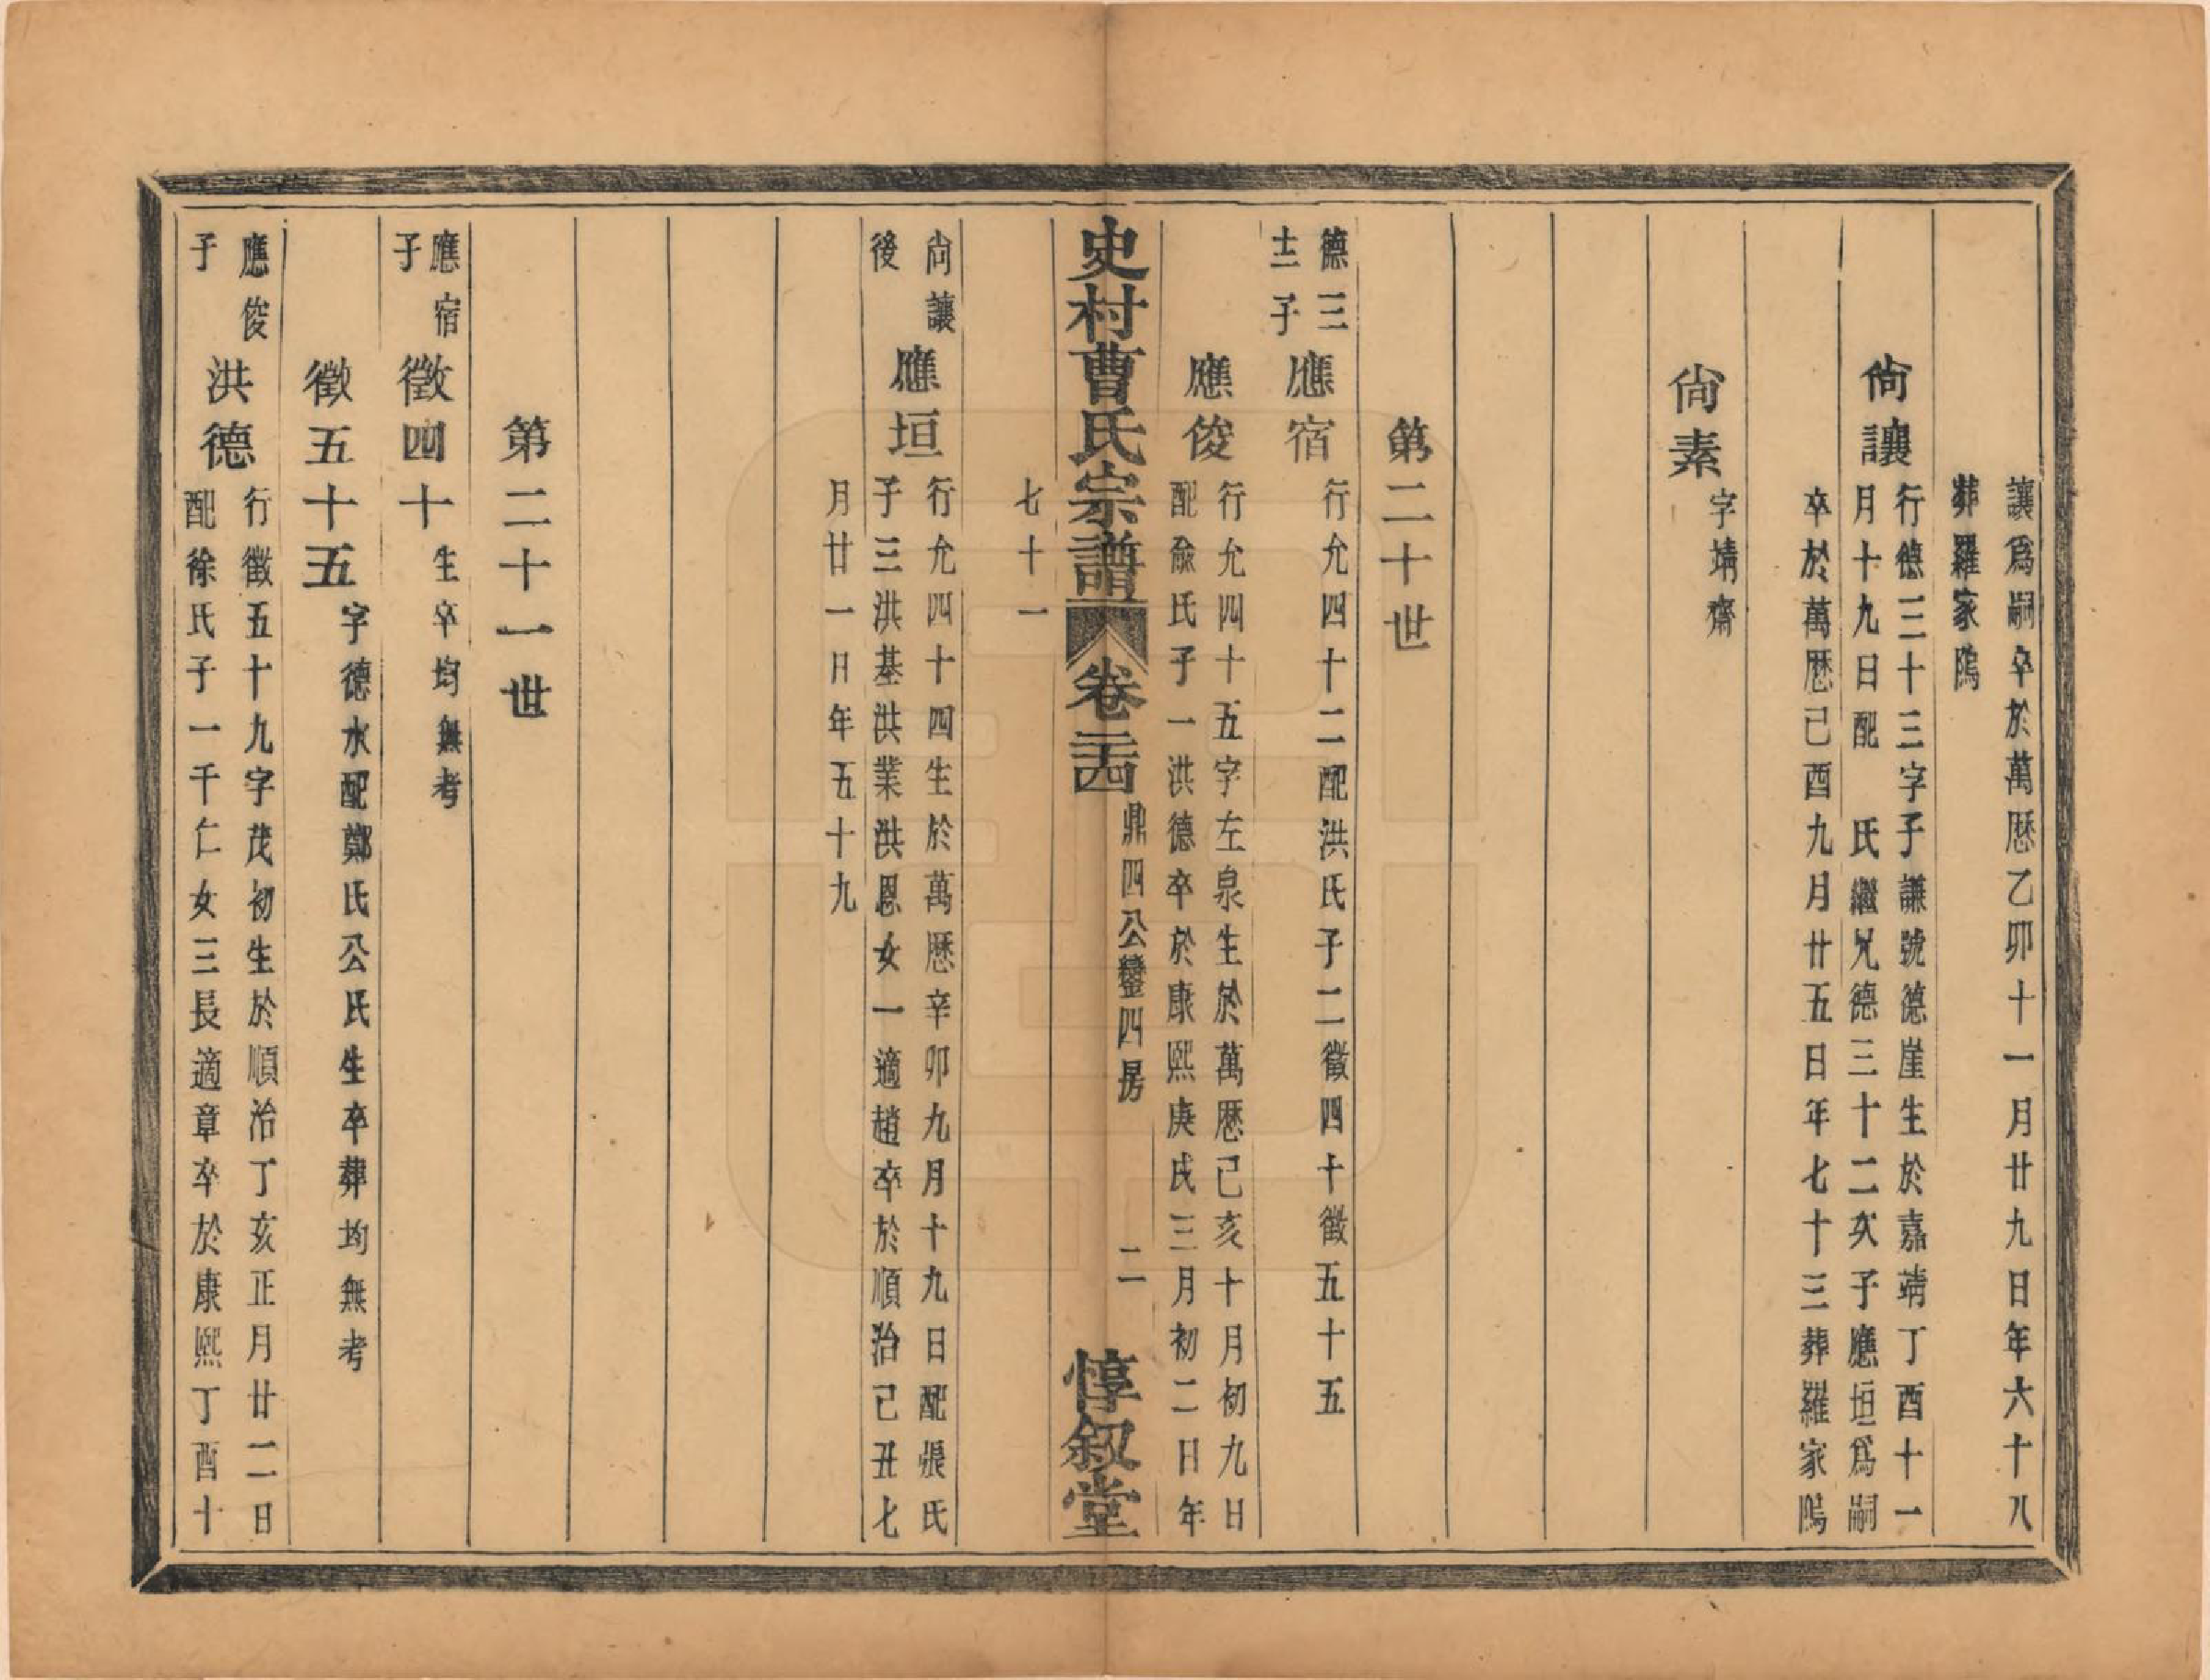 讓爲嗣卒於萬厯乙卯十一月廿九日年六十八
葬羅家隖
尙讓
行德三十三字子謙號德崖生於嘉靖丁酉十一
月十九日配　氏繼兄德三十二次子應垣爲嗣
卒於萬厯己酉九月廿五日年七十三葬羅家隖
尙素
字靖齋
第二十世
德三
十二子
應宿
行允四十二配洪氏子二徵四十徵五十五
應俊
行允四十五字左泉生於萬厯己亥十月初九日
配俞氏子一洪德卒於康熙庚戌三月初二日年
七十一
史村曹氏宗譜
卷二十四
鼎四公鑾四房
二
惇叙堂
尙讓
後
應垣
行允四十四生於萬厯辛卯九月十九日配張氏
子三洪基洪業洪恩女一適趙卒於順治己丑七
月廿一日年五十九
第二十一世
應宿
子
徵四十
生卒均無考
徵五十五
字德水配鄭氏公氏生卒葬均無考
應俊
子
洪德
行徵五十九字茂初生於順治丁亥正月廿二日
配徐氏子一千仁女三長適章卒於康熙丁酉十